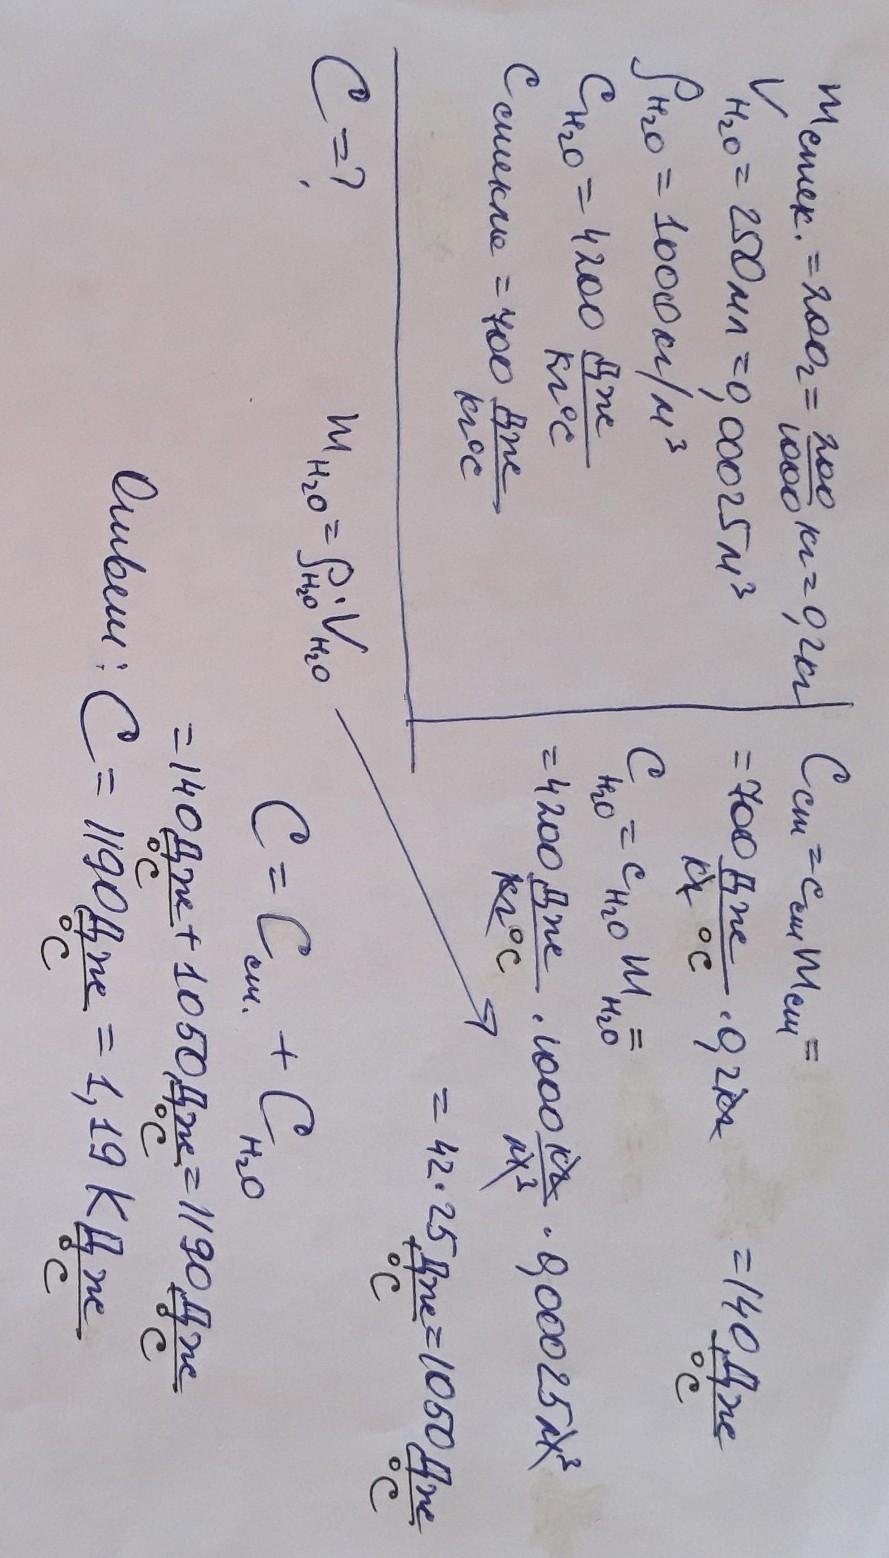 mстек. = 200г = 200/1000 кг = 0,2кг
V H₂O = 250мл = 0,00025м³
ρ H₂O = 1000кг/м³
c H₂O = 4200 Дж/кг°C
c стекла = 700 Дж/кг°C
C = ?
Cст = cст mст =
= 700 Дж/кг °C · 0,2кг = 140 Дж/°C
C H₂O = c H₂O m H₂O =
= 4200 Дж/кг°C · 1000 кг/м³ · 0,00025м³
= 42·25 Дж/°C = 1050 Дж/°C
m H₂O = ρ H₂O · V H₂O
C = C ст. + C H₂O
= 140 Дж/°C + 1050 Дж/°C = 1190 Дж/°C
Ответ: C = 1190 Дж/°C = 1,19 КДж/°C